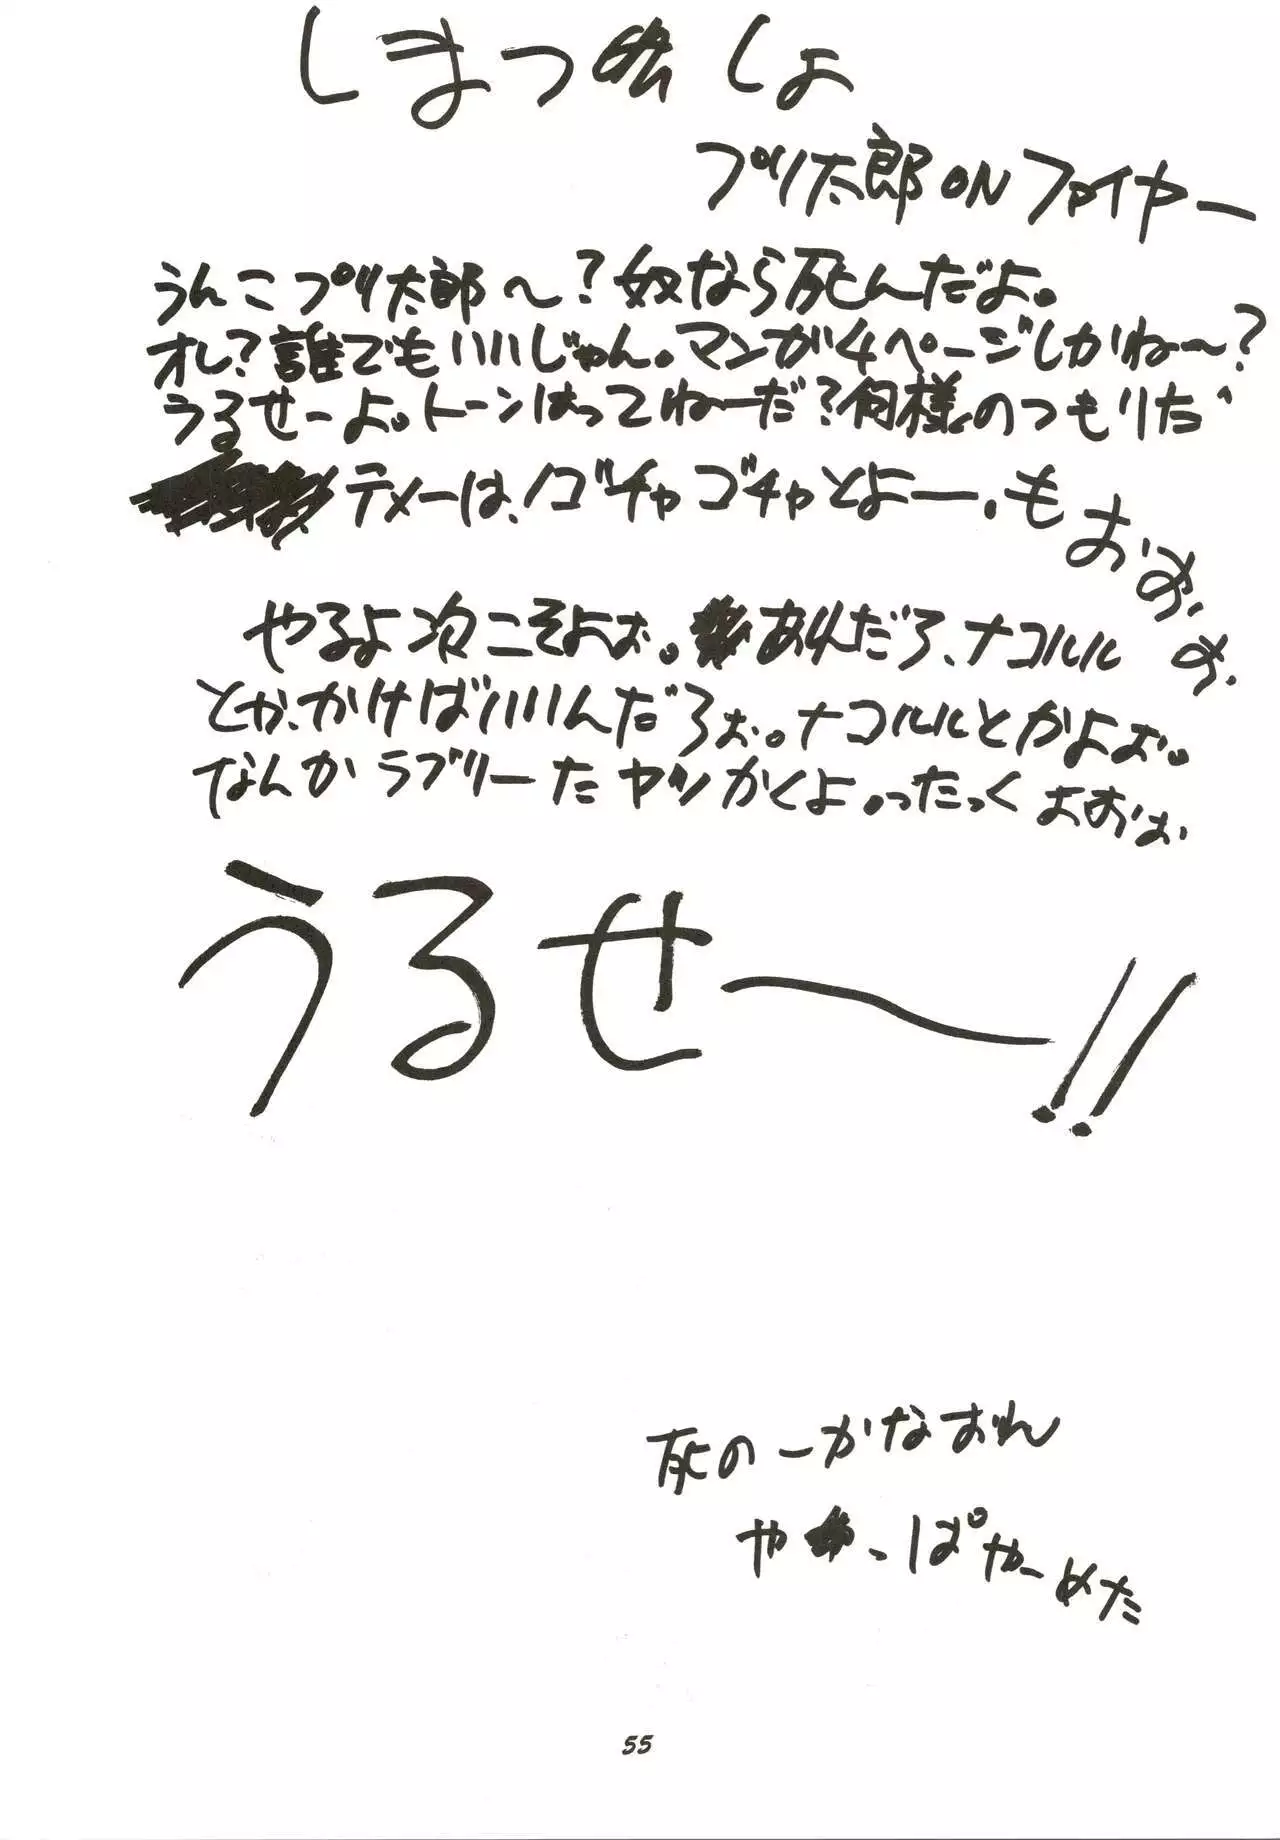 しまつしょ
プリ太郎ONファイヤー
うんこプリ太郎〜?奴なら死んだよ。
オレ?誰でもいいじゃん。マンガ4ページしかね〜?
うるせーよ。トーンはってねーだ?何様のつもりだ
テメーは、ゴチャゴチャとよー、もおおおお、
やるよ次こそよお。あれだろ、ナコルル
とか、かけばいいんだろお。ナコルルとかよお。
なんかラブリーたヤツかくよ。ったくよおおお
うるせ〜!!
死のーかなおれ
やっぱやーめた
55